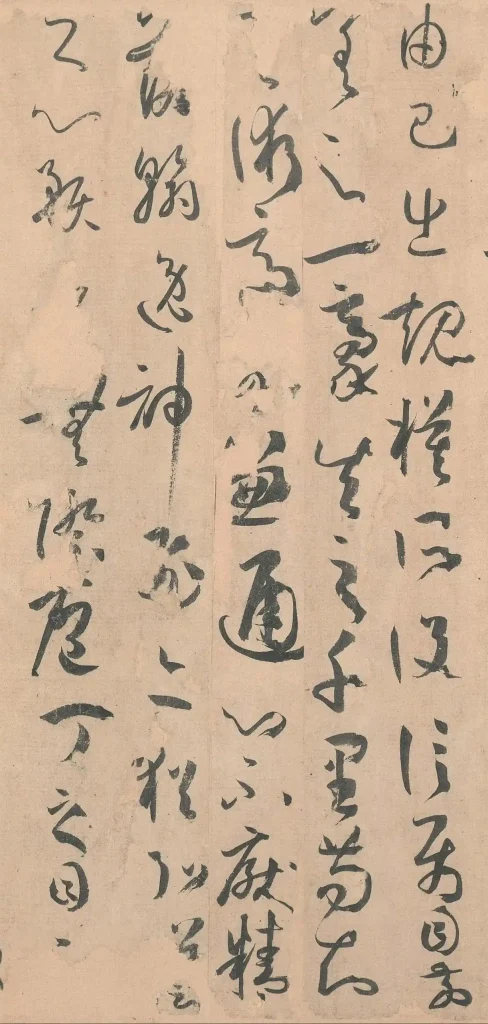 由己出規模所設信屬目前
差之一豪失之千里苟知
其術適可兼通心不厭精
落翰逸神飛亦猶弘羊
之心預乎無際庖丁之目